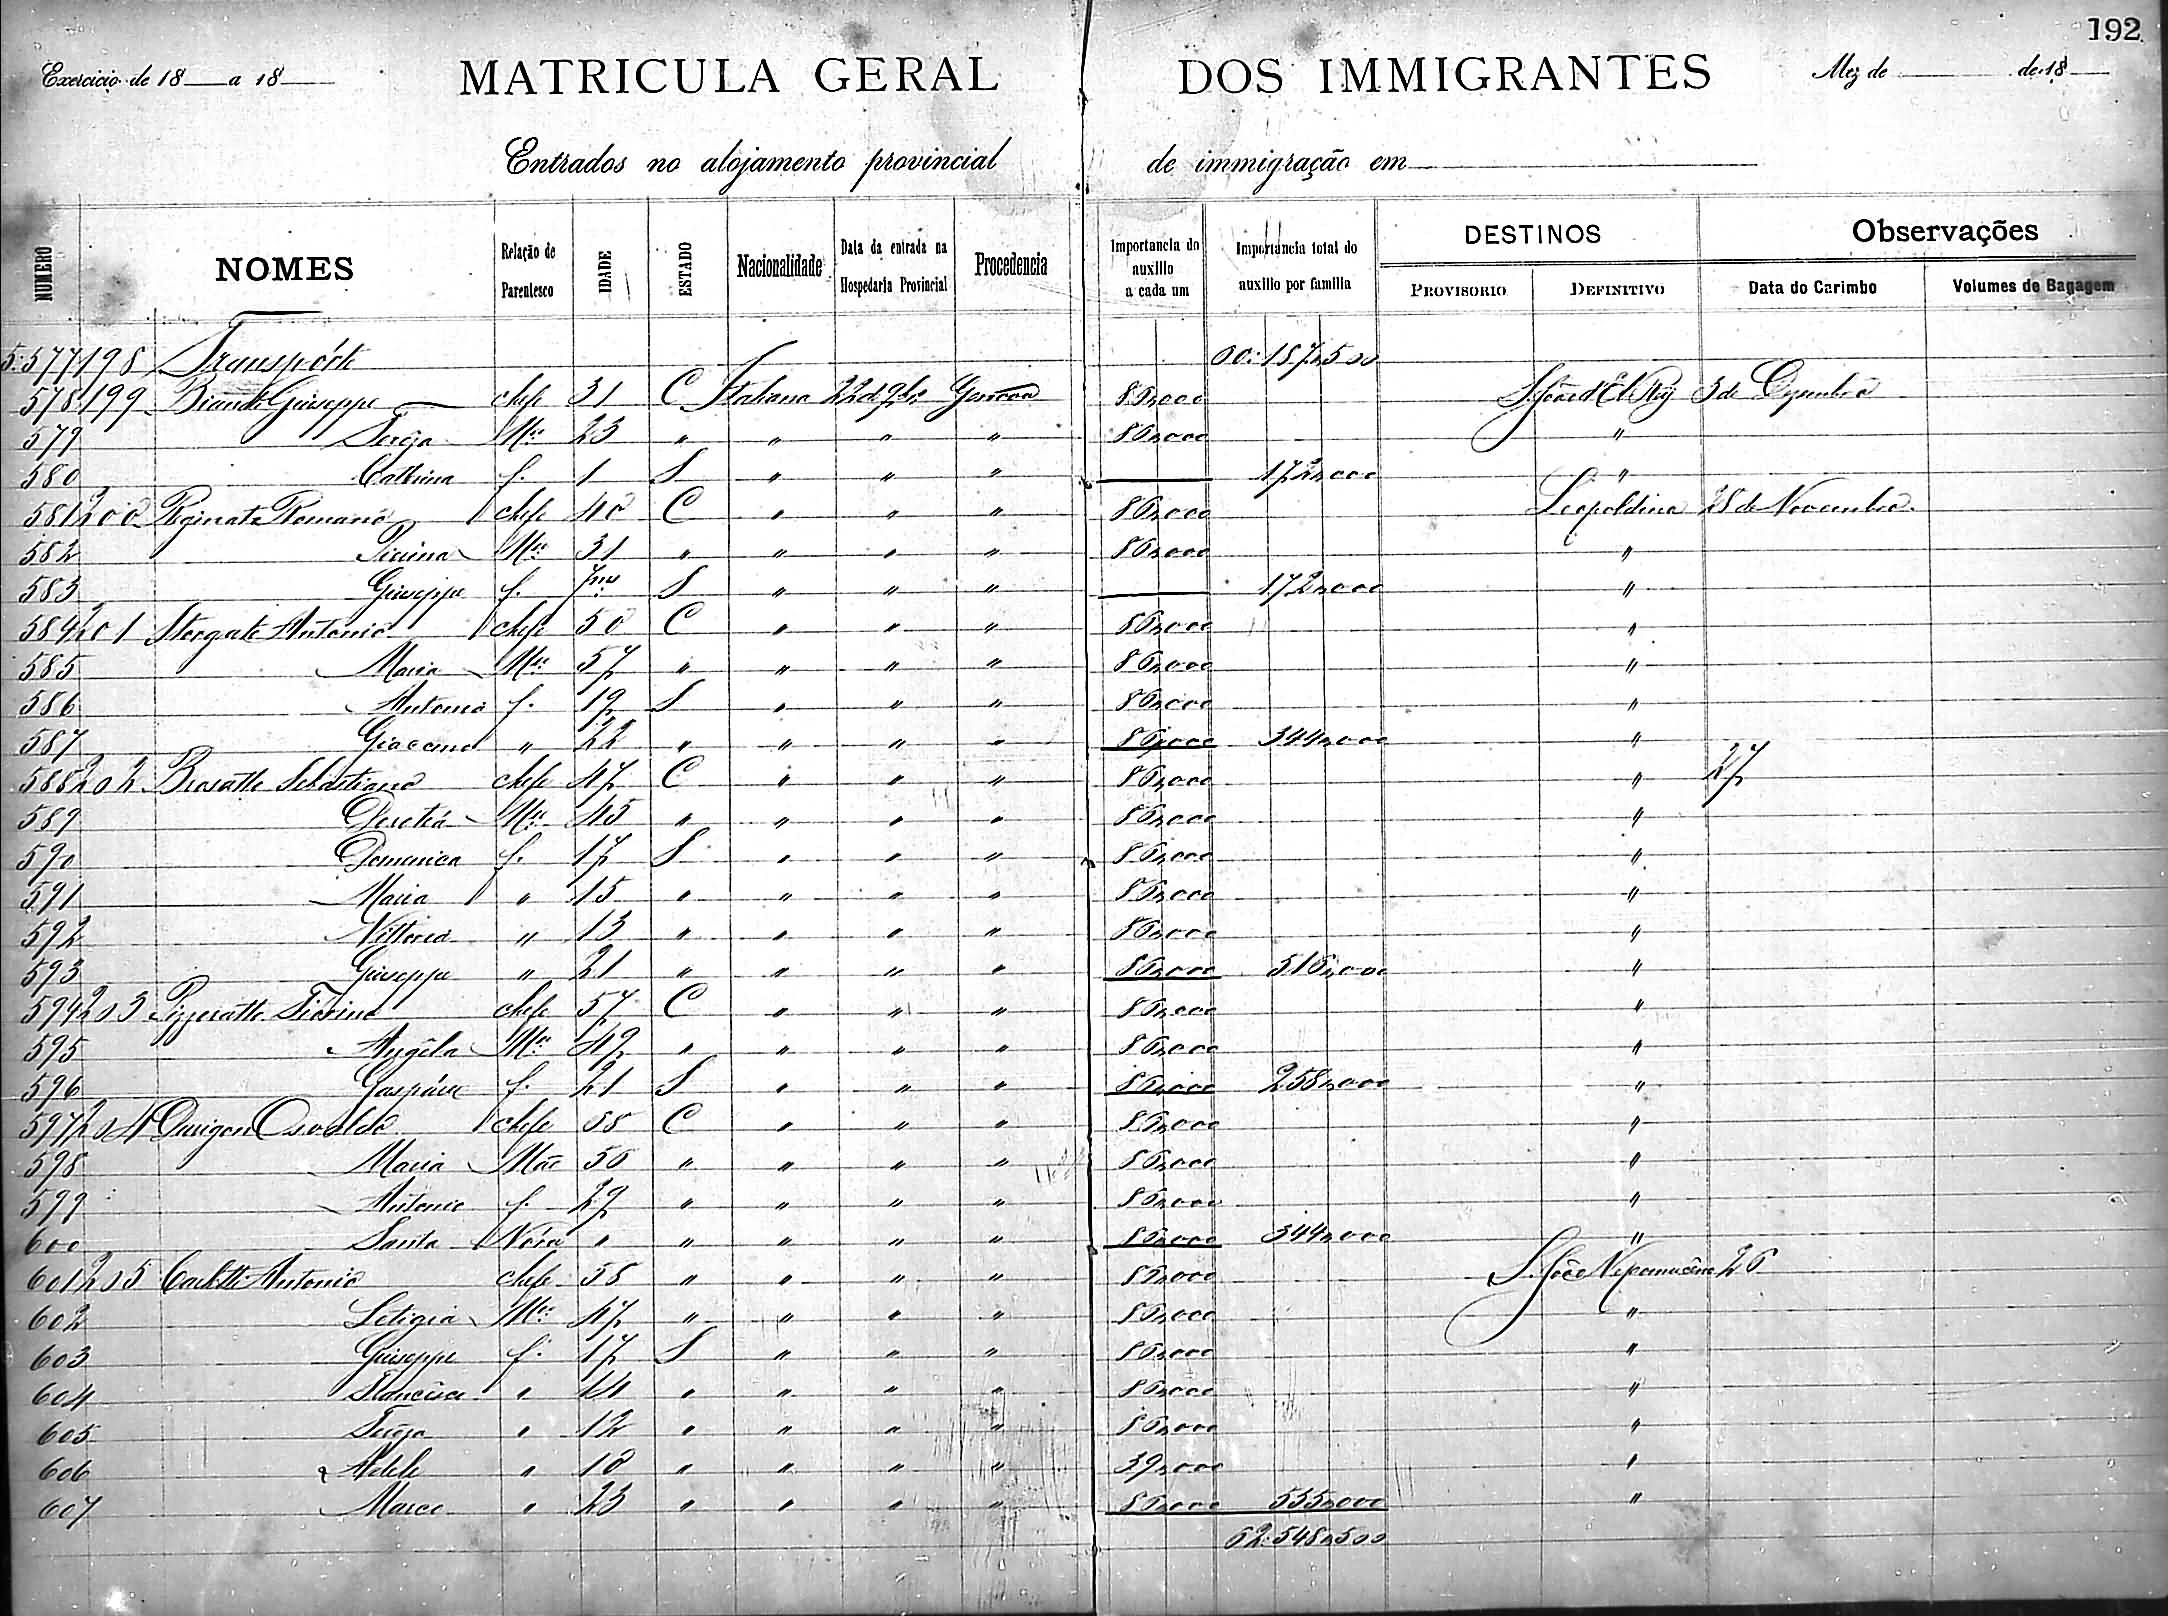 192
Exercicio de 18 a 18 MATRICULA GERAL DOS IMMIGRANTES Mez de de 18
Entrados no alojamento provincial de immigração em
NUMERO NOMES Relação de Parentesco IDADE ESTADO Nacionalidade Data da entrada na Hospedaria Provincial Procedencia Importancia do auxilio a cada um Importancia total do auxilio por familia DESTINOS PROVISORIO DEFINITIVO Observações Data do Carimbo Volumes de Bagagem
5:577 198 Transpórte 60:187$500
578 199 Giuseppe chefe 31 C Italiana 22 d 9bro Genova 86$000 S. João d'El Rey 3 de Dezembro
579 Mer 23 " " " " 86$000 "
580 f. 1 S " " " 172$000 "
581 200 Romano chefe 40 C " " " 86$000 Leopoldina 28 de Novembro
582 Mer 31 " " " " 86$000 "
583 Giuseppe f. 7 ms S " " " 172$000 "
584 201 Antonio chefe 50 C " " " 86$000 "
585 Maria Mer 57 " " " " 86$000 "
586 Antonio f. 19 S " " " 86$000 "
587 Giacomo " 22 " " " " 86$000 344$000 "
588 202 Sebastiano chefe 47 C " " " 86$000 " 27
589 Mer 45 " " " " 86$000 "
590 Domenica f. 17 S " " " 86$000 "
591 Maria " 15 " " " " 86$000 "
592 Vittoria " 13 " " " " 86$000 "
593 Giuseppe " 21 " " " " 86$000 516$000 "
594 203 chefe 57 C " " " 86$000 "
595 Angéla Mer 49 " " " " 86$000 "
596 Gaspáre f. 21 S " " " 86$000 258$000 "
597 204 Durigon Osvaldo chefe 58 C " " " 86$000 "
598 Maria Mãe 50 " " " " 86$000 "
599 Antonio f. 29 " " " " 86$000 "
600 Santa Nóra " " " " " 86$000 344$000 "
601 205 Antonio chefe 58 " " " " 86$000 S. João Nepomucêno 26
602 Letizia Mer 47 " " " " 86$000 "
603 Giuseppe f. 17 S " " " 86$000 "
604 " 14 " " " " 86$000 "
605 " 12 " " " " 86$000 "
606 Adele " 10 " " " " 39$000 "
607 Marco " 23 " " " " 86$000 555$000 "
62:548$500